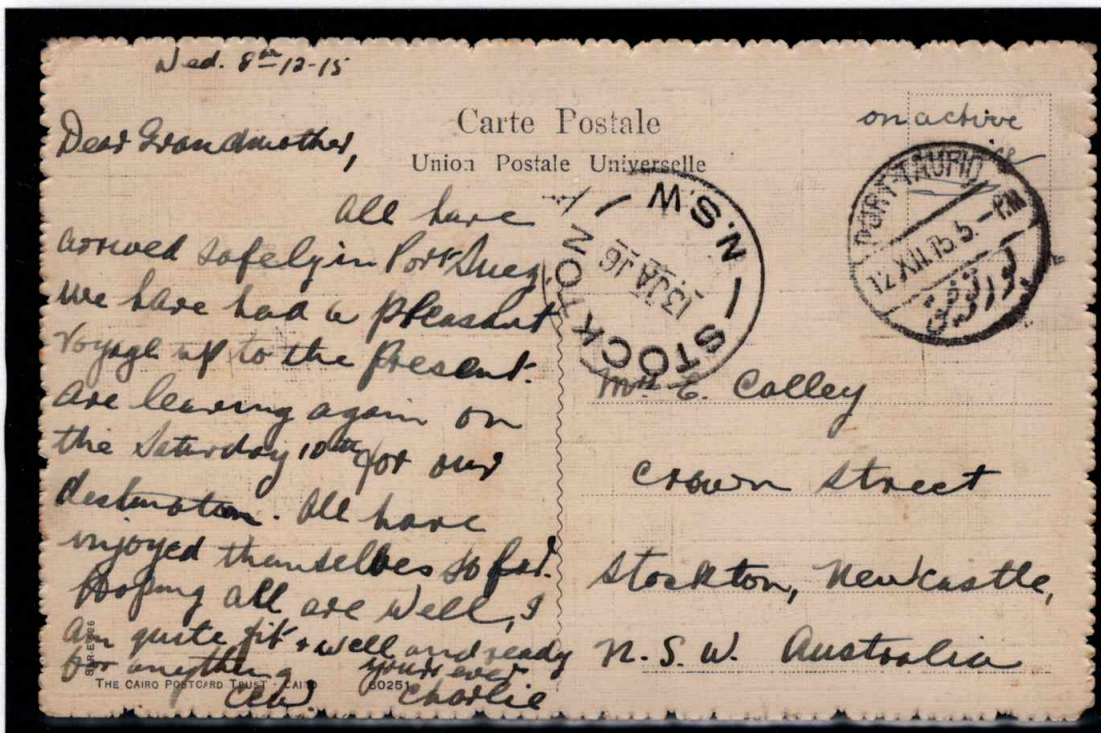 Wed. 8th-12-15
Dear Grandmother,
All have
arrived safely in Port Suez.
We have had a pleasant
voyage up to the present.
Are leaving again on
the Saturday 10th for our
destination. All have
injoyed themselves so far.
Hoping all are well, I
am quite fit & well and ready
for anything
yours ever
Charlie
Carte Postale
Union Postale Universelle
on active
PORT-TAUFIQ
12.XII.15.5-PM
STOCKTON N.S.W
13 JA 16
E. Calley
Crown Street
Stockton, Newcastle,
N.S.W. Australia
THE CAIRO POSTCARD TRUST - CAIRO
50251